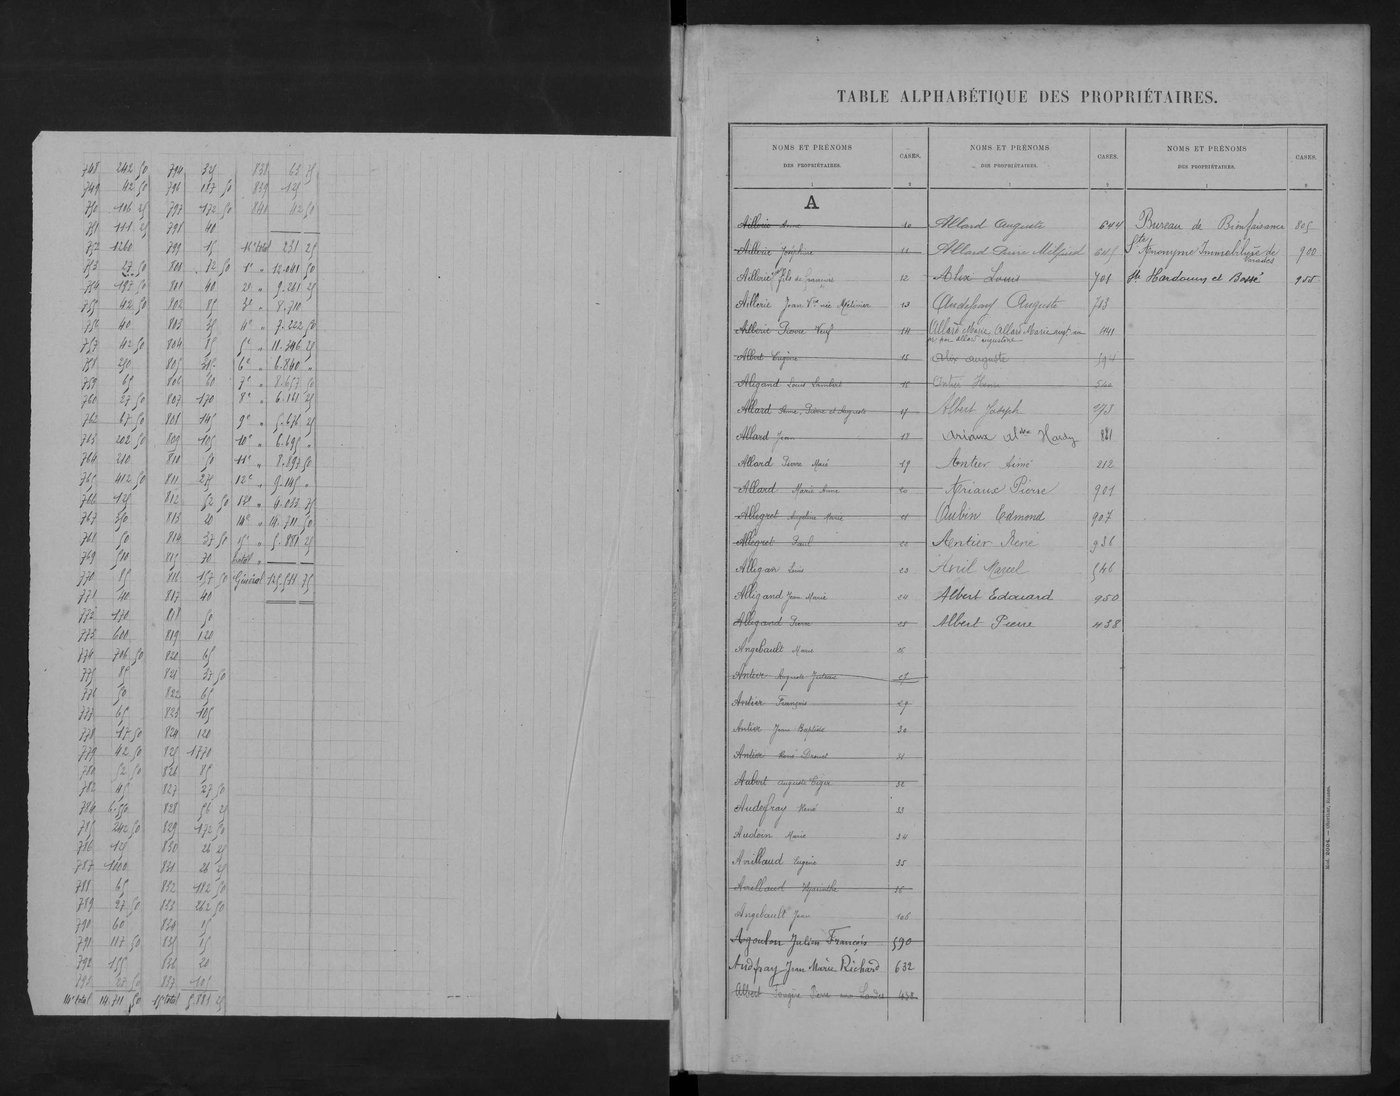 748 242 50 794 35 838 65 75
749 42 50 796 187 50 839 125
750 106 25 797 172 50 840 112 50
751 111 25 798 40
752 1260 799 15 16e total 231 25
753 27 50 800 72 50 1e " 12.048 50
754 187 50 801 40 2e " 9.281 25
755 42 50 802 85 3e " 8.710
756 40 803 35 4e " 7.222 50
757 42 50 804 85 5e " 11.346 25
6e " 6.840 "
759 65 806 60 7e " 8.657 50
760 27 50 807 170 8e " 6.161 25
762 67 50 808 145 9e " 5.676 25
763 202 50 809 105 10e " 6.695 "
764 210 810 50 11e " 8.897 50
765 412 50 811 275 12e " 9.145 "
766 125 812 52 50 13e " 4.033 75
767 350 813 20 14e " 14.711 50
768 50 814 37 50 15e " 5.881 25
769 500 815 70 total
770 85 816 157 50 Général 125.538 75
771 40 817 40
772 170 818 50
773 600 819 120
774 706 50 820 65
775 85 821 37 50
776 50 822 65
777 65 823 105
778 17 50 824 120
779 42 50 825 1770
780 52 50 826 85
782 45 827 27 50
784 650 828 56 25
785 242 50 829 172 50
786 125 830 26 25
787 1000 831 26 25
788 65 832 182 50
789 27 50 833 262 50
790 60 834 15
791 117 50 835 15
792 155 836 20
837 101
14e total 14.711 50 15e total 5.881 25
TABLE ALPHABÉTIQUE DES PROPRIÉTAIRES.
NOMS ET PRÉNOMS DES PROPRIÉTAIRES. CASES. NOMS ET PRÉNOMS DES PROPRIÉTAIRES. CASES. NOMS ET PRÉNOMS DES PROPRIÉTAIRES. CASES.
1 2 1 2 1 2
A
Aillerie Anne 10
Aillerie Joséphine 11
Aillerie 12
Aillerie Jean Vve née Métivier 13
Aillerie Pierre Veuf 14
Albert Eugène 15
Aligand Louis Lambert 16
Allard Anne, Pierre et Auguste 17
Allard Jean 18
Allard Pierre René 19
Allard Marie Anne 20
Allegret Angeline Marie 21
Allegret Paul 22
Alligan Louis 23
Alligand Jean Marie 24
Alligand Pierre 25
Angebault Marie 26
Antier Auguste Julien 27
Antier François 29
Antier Jean Baptiste 30
Antier René Drouet 31
Aubert Auguste Tiger 32
Audefray René 33
Audoin Marie 34
Avrillaud Eugène 35
Avrillaud Hyacinthe 36
Angebault Jean 106
Agoulon Julien François 590
Audfray Jean Marie Richard 632
Albert Pierre aux Landes 438
Allard Auguste 644
Allard Aimé Milfried 645
Alix Louis 701
Audefray Auguste 713
Allard Marie, Allard Marie
par Allard Augustine
Alix Auguste 594
Antier Henri 540
Albert Joseph 273
Ariaux Alexdre Hardy 881
Antier Aimé 212
Ariaux Pierre 901
Aubin Edmond 907
Antier René 936
Avril Marcel 546
Albert Edouard 950
Albert Pierre 438
Bureau de Bienfaisance 805
Sté Anonyme Immobilière de 900
Hardouin et Bossé 955
Mod. 2004. — Oberthur, Rennes.